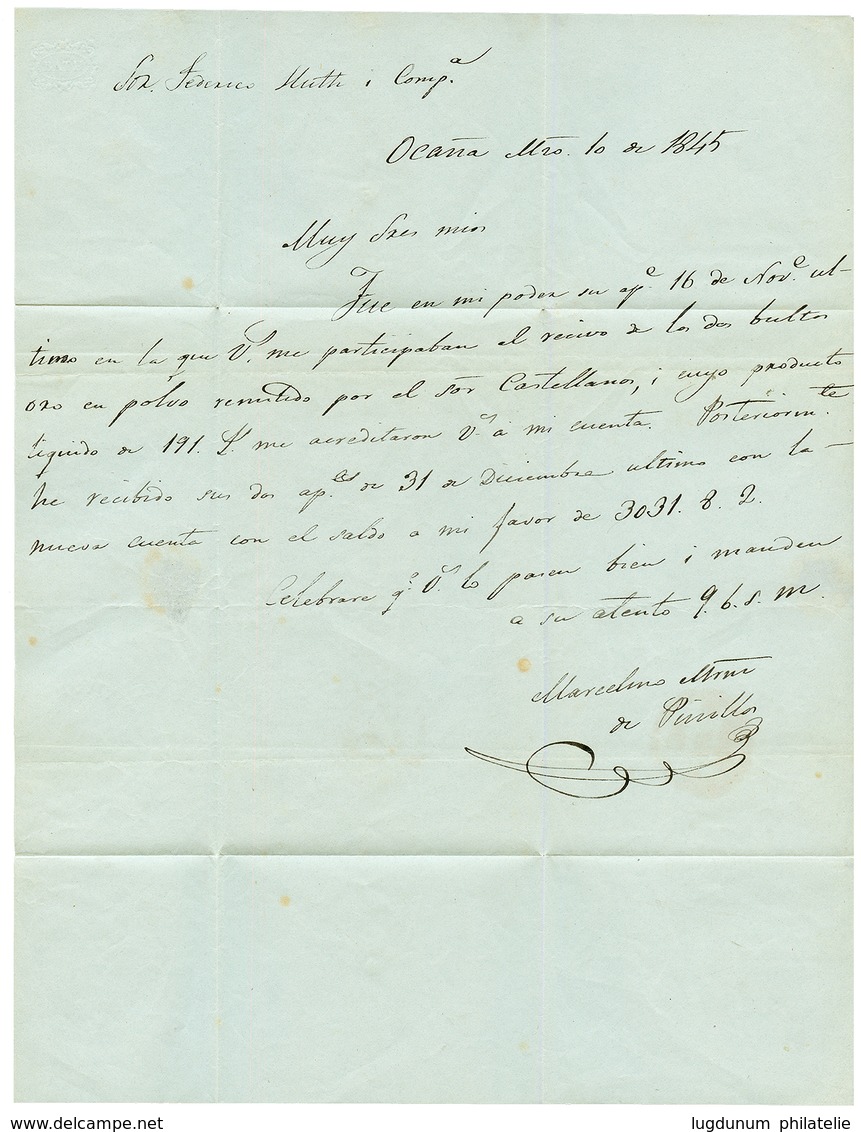 Sor. Federico Huth i Comp.a
Ocaña Mzo. 10 de 1845
Muy Sres mios
Fue en mi poder su ap.e 16 de Nov.e ul-
timo en la que V.s me participaban el recivo de los dos bultos
oro en polvo remitido por el Sor Castellanos, i cuyo producto
liquido de 191. L. me acreditaron V.s a mi cuenta. Posteriorm.te
he recibido sus dos ap.es de 31 de Diciembre ultimo con la
nueva cuenta con el saldo a mi favor de 3031. 8. 2.
Celebrare q.e V.s lo pasen bien i manden
a su atento q. b. s. m.
Marcelino
de Pinillos
delcampe.net
lugdunum philatelie